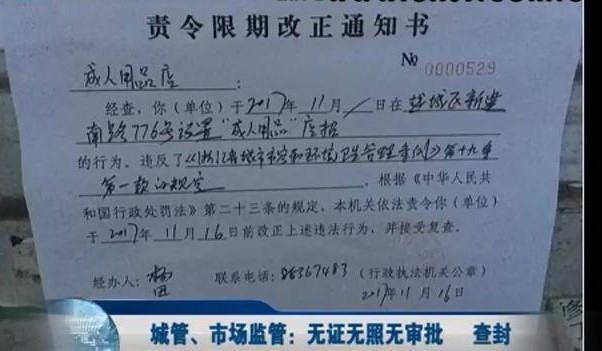 责令限期改正通知书
№ 0000529
成人用品店：
经查，你（单位）于2017年11月／日在越城区新建
南路776号设置“成人用品”店招
的行为。违反了《浙江省城市市容和环境卫生管理条例》第十九条
第一款的规定，根据《中华人民共
和国行政处罚法》第二十三条的规定，本机关依法责令你（单位）
于2017年11月16日前改正上述违法行为，并接受复查。
经办人： 联系电话：88367483（行政执法机关公章）
2017年11月16日
城管、市场监管：无证无照无审批 查封